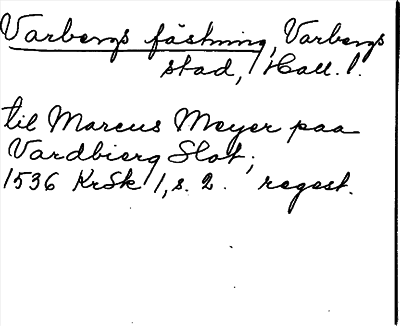 Varbergs fästning, Varbergs
stad, Hall. l.
til Marcus Meyer paa
Vardbierg Slot;
1536 KrSk 1, s. 2. regest.